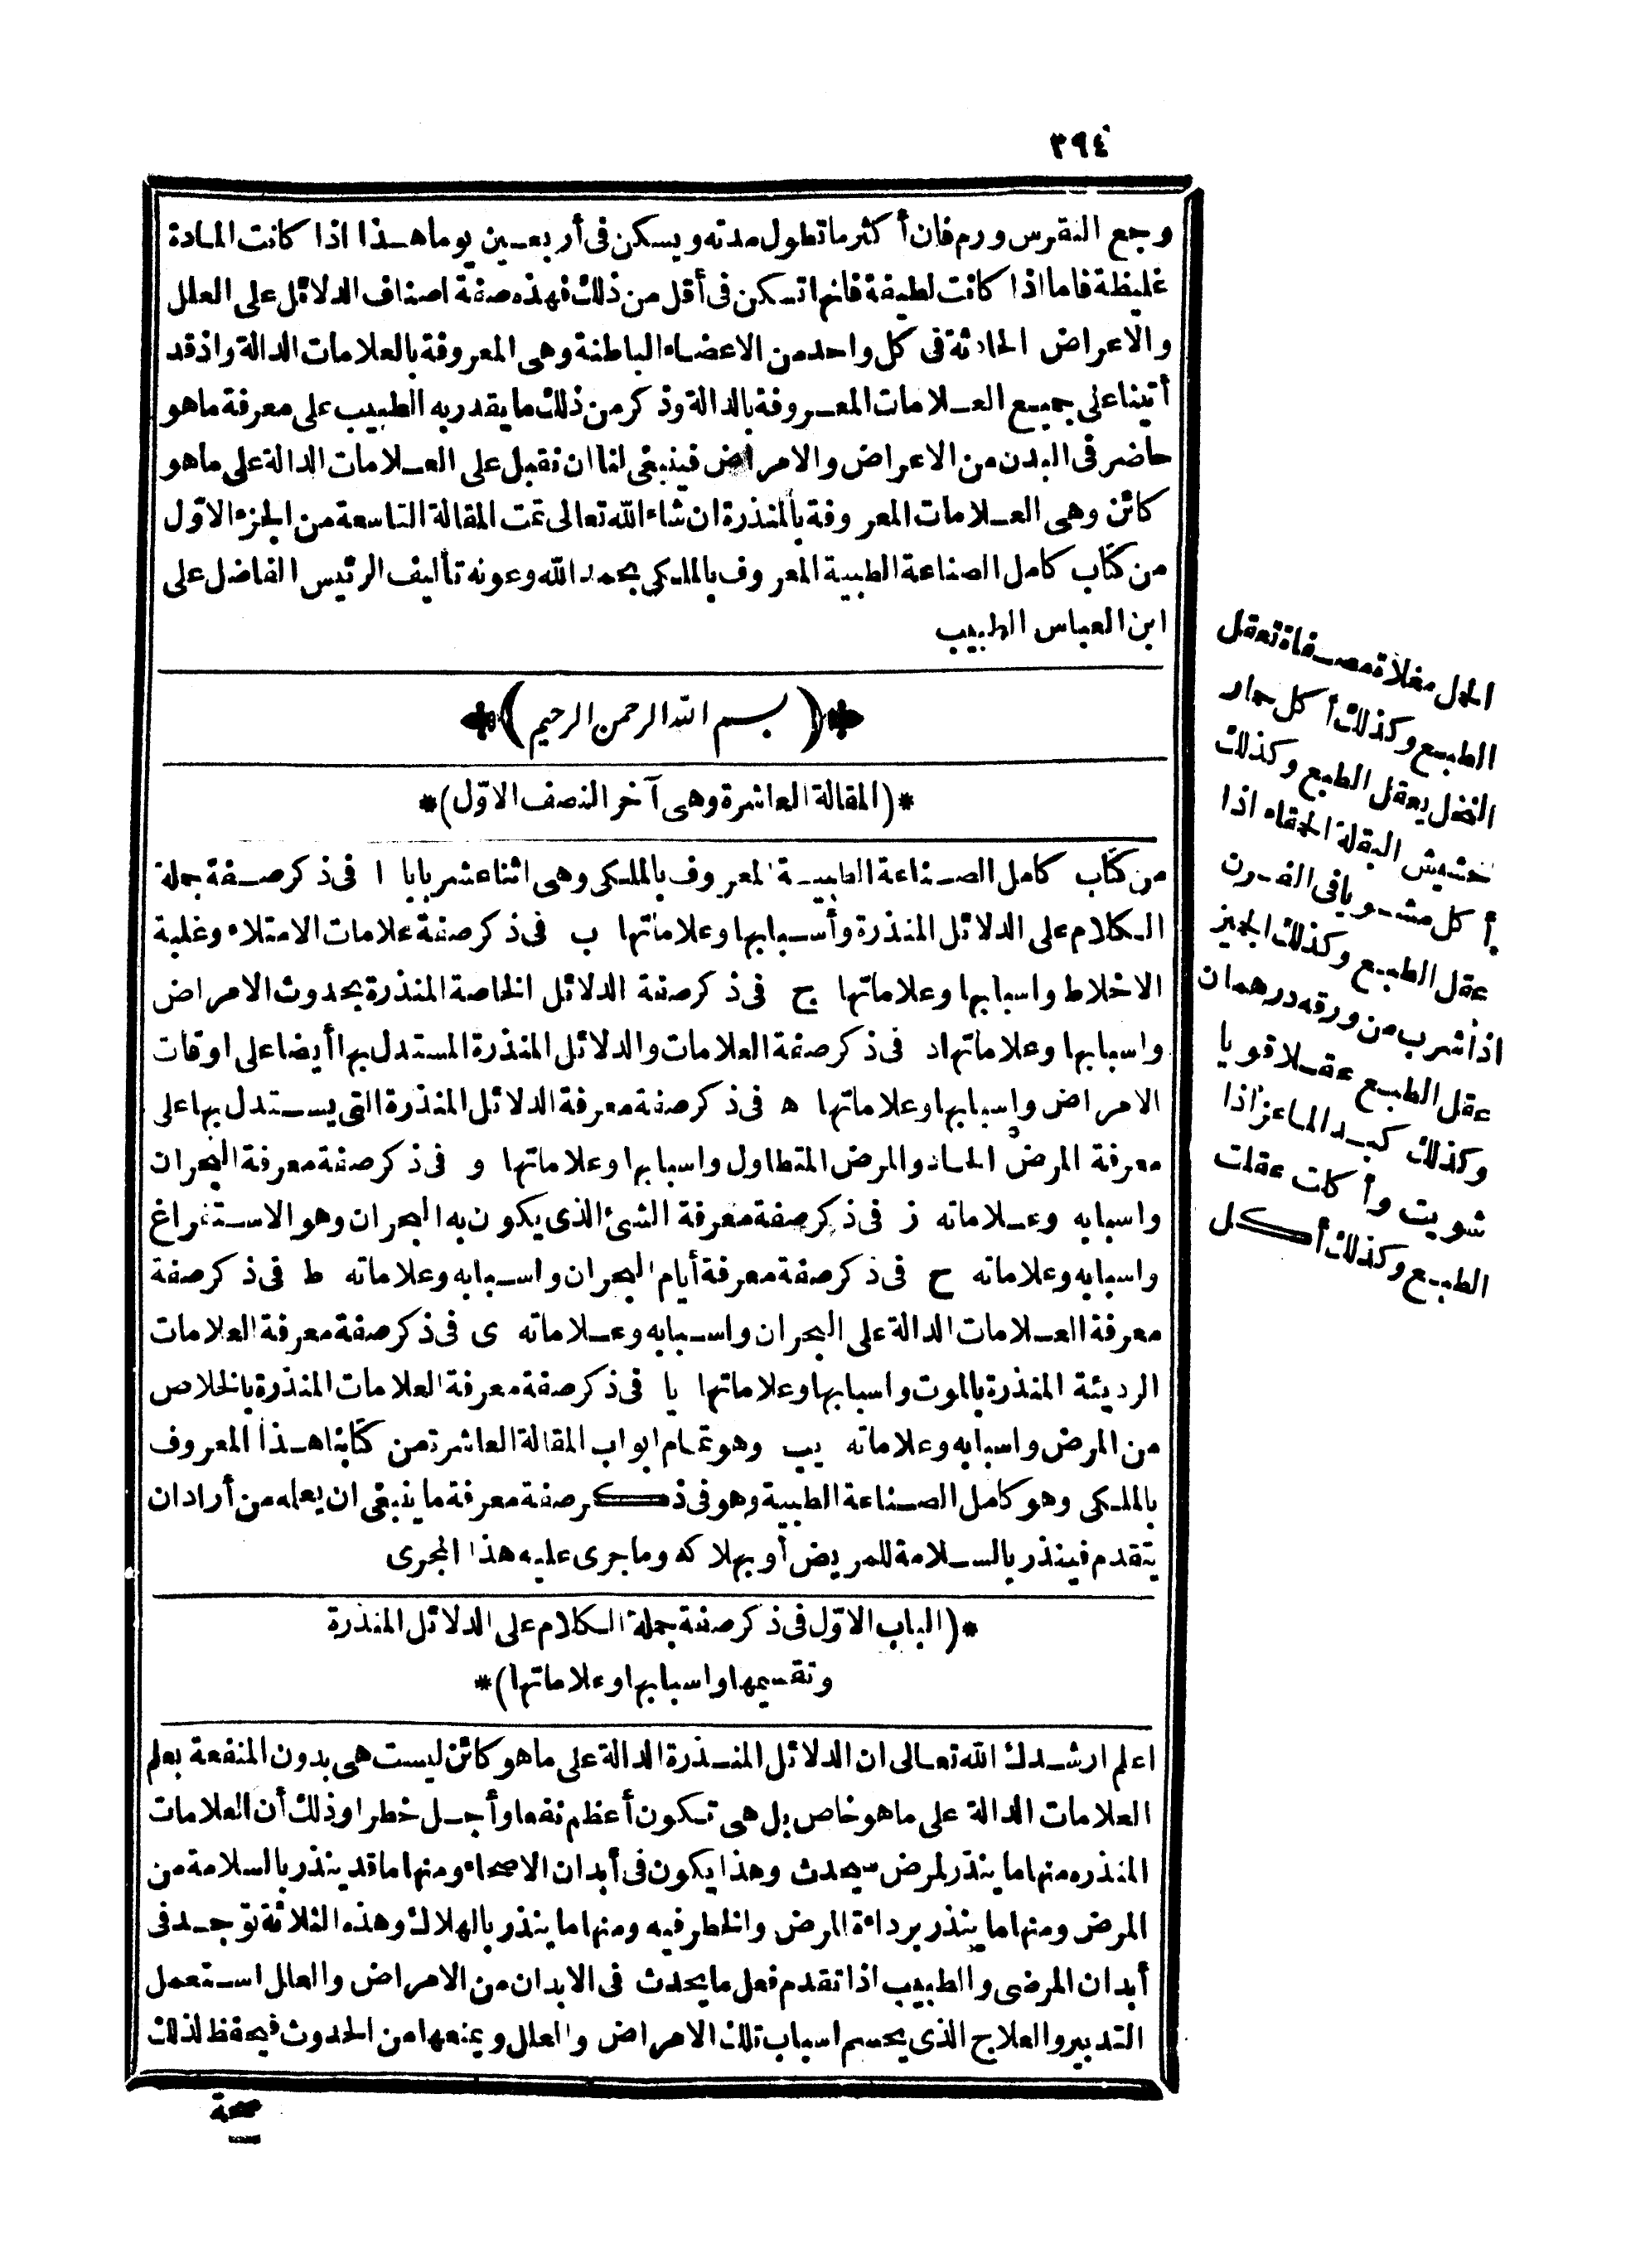 ٣٩٤
وجع النقرس ورم فان أكثر ما تطول مدته ويسكن فى أربعين يوما هذا اذا كانت المادة
غليظة فاما اذا كانت لطيفة فانها تسكن فى أقل من ذلك فهذه صفة اصناف الدلائل على العلل
والاعراض الحادثة فى كل واحد من الاعضاء الباطنة وهى المعروفة بالعلامات الدالة واذ قد
أتينا على جميع العلامات المعروفة بالدالة وذكر من ذلك ما يقدر به الطبيب على معرفة ما هو
حاضر فى البدن من الاعراض والامراض فينبغى لنا ان نقبل على العلامات الدالة على ما هو
كائن وهى العلامات المعروفة بالمنذرة ان شاء الله تعالى تمت المقالة التاسعة من الجزء الاوّل
من كتاب كامل الصناعة الطبية المعروف بالملكى بحمد الله وعونه تأليف الرئيس الفاضل على
ابن العباس الطبيب
(بسم الله الرحمن الرحيم)
*(المقالة العاشرة وهى آخر النصف الاوّل)*
من كتاب كامل الصناعة الطبية المعروف بالملكى وهى اثنا عشر بابا ا فى ذكر صفة جملة
الكلام على الدلائل المنذرة وأسبابها وعلاماتها ب فى ذكر صفة علامات الامتلاء وغلبة
الاخلاط واسبابها وعلاماتها ج فى ذكر صفة الدلائل الخاصة المنذرة بحدوث الامراض
واسبابها وعلاماتها د فى ذكر صفة العلامات والدلائل المنذرة المستدل بها أيضا على اوقات
الامراض واسبابها وعلاماتها ه فى ذكر صفة معرفة الدلائل المنذرة التى يستدل بها على
معرفة المرض الحاد والمرض المتطاول واسبابها وعلاماتها و فى ذكر صفة معرفة البحران
واسبابه وعلاماته ز فى ذكر صفة معرفة الشئ الذى يكون به البحران وهو الاستفراغ
واسبابه وعلاماته ح فى ذكر صفة معرفة أيام البحران واسبابه وعلاماته ط فى ذكر صفة
معرفة العلامات الدالة على البحران واسبابه وعلاماته ى فى ذكر صفة معرفة العلامات
الرديئة المنذرة بالموت واسبابها وعلاماتها يا فى ذكر صفة معرفة العلامات المنذرة بالخلاص
من المرض واسبابه وعلاماته يب وهو تمام ابواب المقالة العاشرة من كتابنا هذا المعروف
بالملكى وهو كامل الصناعة الطبية وهو فى ذكر صفة معرفة ما ينبغى ان يعلمه من أراد ان
يتقدم فينذر بالسلامة للمريض أو بهلاكه وما جرى عليه هذا المجرى
*(الباب الاوّل فى ذكر صفة جملة الكلام على الدلائل المنذرة
وتقسيمها واسبابها وعلاماتها)*
اعلم ارشدك الله تعالى ان الدلائل المنذرة الدالة على ما هو كائن ليست هى بدون المنفعة بعلم
العلامات الدالة على ما هو خاص بل هى تكون أعظم نفعا وأجل خطرا وذلك أن العلامات
المنذره منها ما ينذر لمرض سيحدث وهذا يكون فى أبدان الاصحاء ومنها ما قد ينذر بالسلامة من
المرض ومنها ما ينذر برداءة المرض والخطر فيه ومنها ما ينذر بالهلاك وهذه الثلاثة توجد فى
أبدان المرضى والطبيب اذا تقدم فعل ما يحدث فى الابدان من الامراض والعلل استعمل
التدبير والعلاج الذى يحسم اسباب تلك الامراض والعلل ويمنعها من الحدوث فيحفظ لذلك
صحة
الخل مغلاة مصفاة تعقل
الطبع وكذلك أكل جمار
النخل يعقل الطبع وكذلك
حشيش البقلة الحمقاء اذا
أكل مشويا فى الفرن
عقل الطبع وكذلك الجميز
اذا شرب من ورقه درهمان
عقل الطبع عقلا قويا
وكذلك كبد الماعز اذا
شويت وأكلت عقلت
الطبع وكذلك أكل